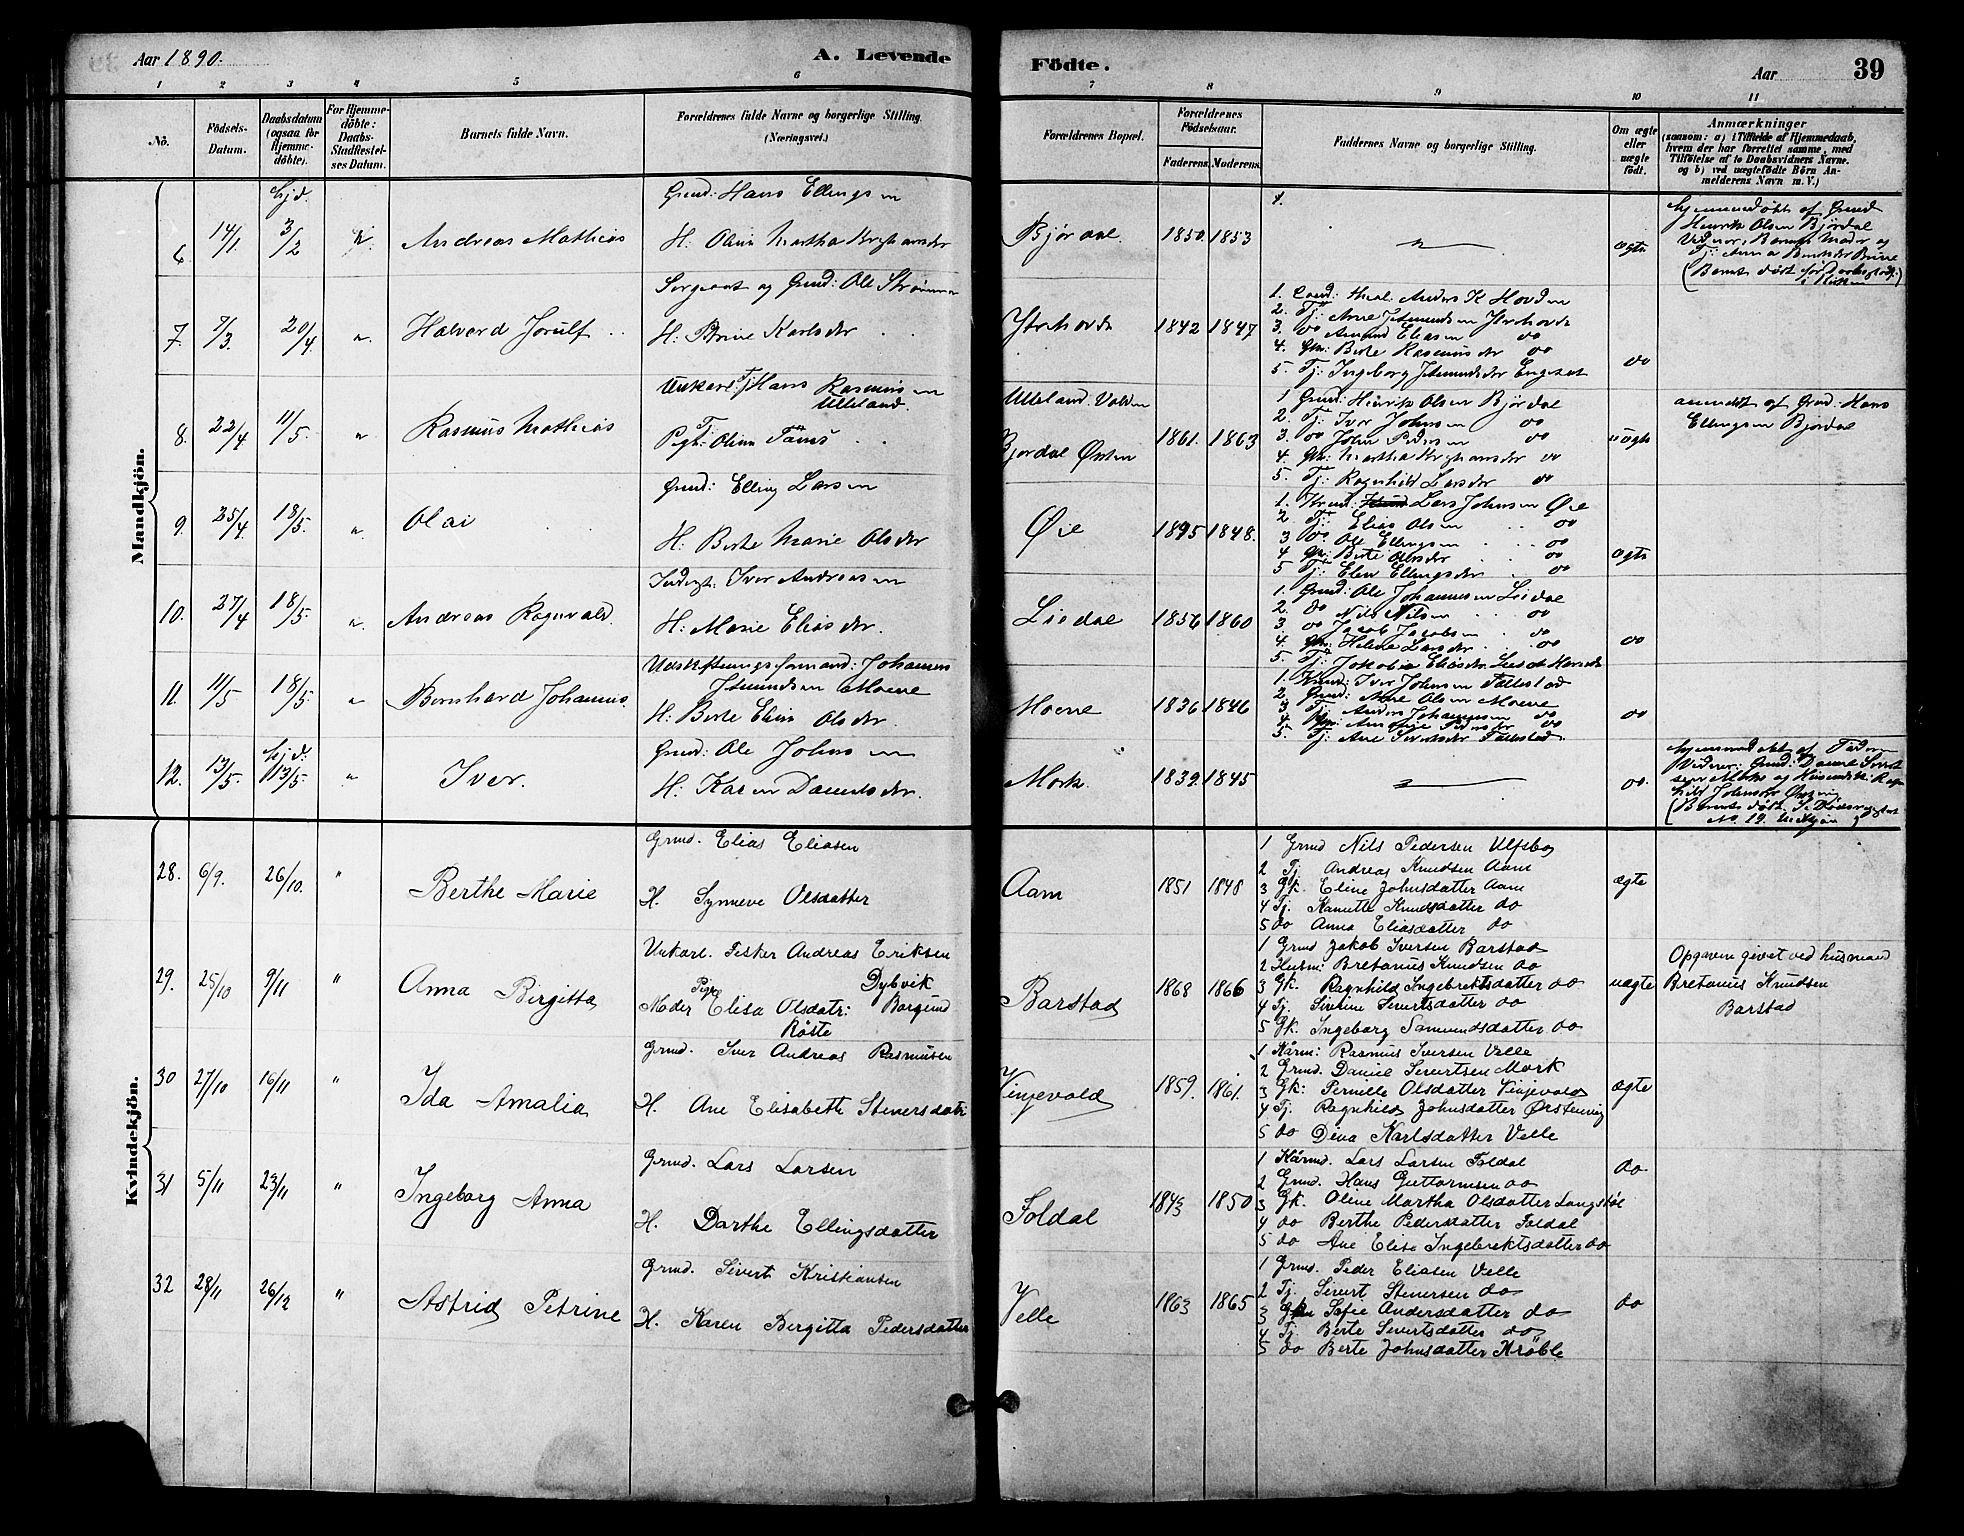 Aar 1890.
A. Levende
Födte.
Aar
39
1 2 3 4 5 6 7 8 9 10 11
No.
Födsels-
Datum.
Daabsdatum
(ogsaa for
Hjemme-
döbte).
For Hjemme-
döbte:
Daabs-
Stadfæstel-
ses Datum.
Barnets fulde Navn.
Forældrenes fulde Navne og borgerlige Stilling.
(Næringsvei.)
Forældrenes Bopæl.
Forældrenes
Födselsaar.
Faderens. Moderens.
Faddernes Navne og borgerlige Stilling.
Om ægte
eller
uægte
födt.
Anmærkninger
(saasom: a) i Tilfælde af Hjemmedaab,
hvem der har forrettet samme, med
Tilföielse af to Daabsvidners Navne.
og b) ved uægtefödte Börn An-
melderens Navn m. V.)
Mandkjön.
6. 14/1 hjd. 3/2 Andreas Mathias
Grmd: Hans Ellingsen
H: Oline Martha
Bjørdal. 1850. 1853
ægte
hjemmedøbt af Grmd
Henrik Olsen Bjørdal
7. 7/3. 20/4. " Halvard Jorulf
Sergeant og Grmd: Ole Strømmen
H: Brine Karlsdr
Ytrehovde 1842 1847
1. Cand: theol. Anders K Hovden
2. Tj: Arne Ytrehovde
3. do Amund Eliasen do
4. Gk: Berte Rasmusdr do
5. Tj: Ingeborg Engeset
do
8. 22/4 11/5. " Rasmus Mathias
Unkarl: Tj: Hans Rasmusen
Ulleland.
Pige: Tj: Oline
Ulleland. Volden
Bjørdal Ørsten 1861. 1863
1 Grmd: Henrik Olsen Bjørdal
2. Tj: Iver Johnsen do
3. do John Pedersen do
4. Gk: Martha do
5. Tj: Ragnhild Larsdr do
uægte
anmeldt af Grmd: Hans
Ellingsen Bjørdal
9. 25/4 18/5. " Olai
Grmd: Elling Larsen
H: Berte Marie Olsdr
Øie 1845 1848.
1. Lars Johnsen Øie
2 Tj: Elias Olsen do
3 do Ole Ellingsen do
4. Gk: Berte Olsdr do
5 Tj: Elen Ellingsdr do
ægte
10. 27/4 18/5. " Andreas Ragnvald.
Inderst: Iver Andreasen
H: Marie Eliasdr.
Lisdal 1856 1860
1. Grmd: Ole Johannesen Lisdal
2. do Nils Nilsen do
3. do Jacob Jacobsen do
4. Gk: Helene Larsdr do
5. Tj: Jakobie Eliasdr
do
11. 11/5 18/5. " Bernhard Johannes.
Udskiftningsformand: Johannes
Moene
H: Berte Eline Olsdr.
Moene 1836 1846
1. Iver Johnsen Follestad
2. Grmd: Arne Olsen Moene
3 Tj: Anders Johannesen do
4. Pedersdr do
5. Tj: Ane Follestad
do
12. 13/5. hjd: 13/5. " Iver.
Grmd: Ole Johnsen
H: Karen Danielsdr.
Mork 1839. 1845
do.
hjemmedøbt af Faderen
Vidner: Grmd: Daniel
Mork
Kvindekjön.
28. 6/9. 26/10. " Berthe Marie
Grmd. Elias Eliasen
H. Synneve Olsdatter
Aam 1851 1848
1 Grmd Nils Pedersen Ulfsbog
2 Tj. Andreas Knudsen Aam
3 Gk. Eline Johnsdatter Aam
4 Tj. Hanette Knudsdatter do
5 do Anna Eliasdatter do
ægte
29. 25/10 9/11 " Anna Birgitta
Unkarl. Fisker Andreas Eriksen
Dybvik
Pige
Moder Elisa Olsdatr: Borgund
Røste
Barstad 1868 1866
1 Grmd Jakob Iversen Barstad
2 Husm: Bretanus Knudsen do
3 Gk. Ragnhild Ingebrektsdatter do
4 Tj. Sivrine Severtsdatter do
5 Gk. Ingeborg Samundsdatter do
uægte
Opgaven givet ved husmand
Bretanus Knudsen
Barstad
30 27/10 16/11 " Ida Amalia
Grmd. Iver Andreas Rasmusen
H. Ane Elisabeth Stenersdatr
Vinjevold 1859. 1861.
1 Kårm: Rasmus Iversen Velle
2 Grmd. Daniel Severtsen Mork
3 Gk: Pernille Olsdatter Vinjevold
4 Tj. Ragnhild Johnsdatter Ørstenvig
5 do Dina Karlsdatter Velle
ægte
31 5/11 23/11 " Ingeborg Anna
Grmd. Lars Larsen
H. Darthe Ellingsdatter
Foldal 1843 1850
1 Kårmd. Lars Larsen Foldal
2 Grmd. Hans Guttormsen do
3 Gk. Oline Martha Olsdatter Langstøl
4 do Berthe Pedersdatter Foldal
5 do Ane Elise Ingebrektsdatter do
do
32 28/11 26/12 " Astrid Petrine
Grmd. Sivert Kristiansen
H. Karen Birgitta Pedersdatter
Velle 1863 1865
1 Grmd. Peder Eliasen Velle
2 Tj. Sivert Stenersen do
3 Gk Sofie Andersdatter do
4 Tj. Berte Sivertsdatter do
5 do Berte Johnsdatter Krøble
do